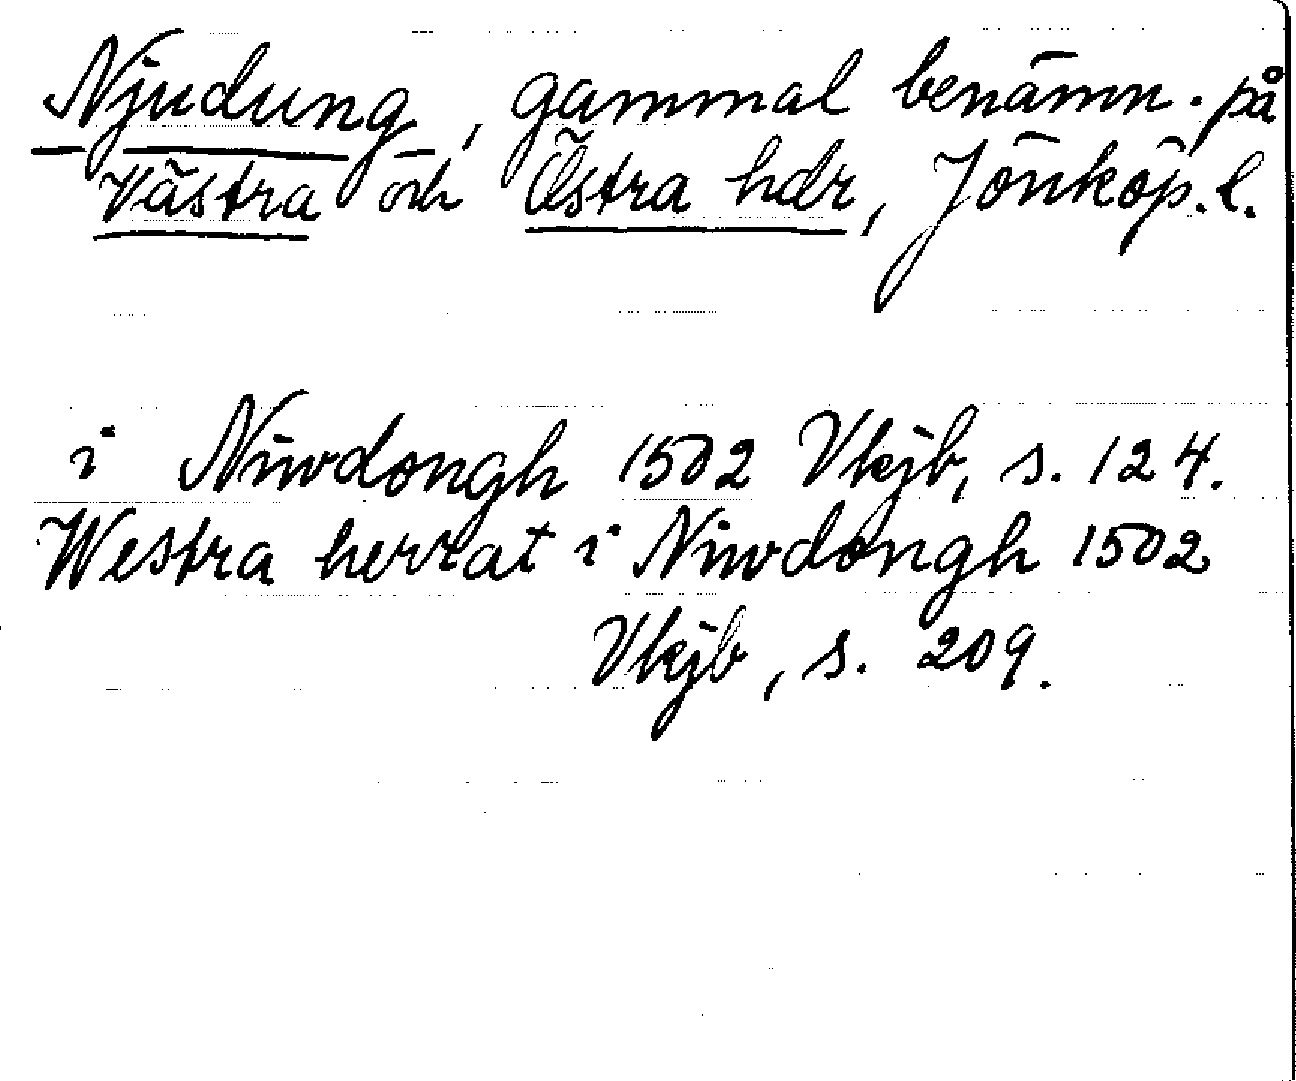 Njudung, gammal benämn. på
Västra och Östra hdr, Jönköp. l.
i Niwdongh 1502 Vkjb, s. 124.
Westra herrat i Niwdongh 1502
Vkjb, s. 209.